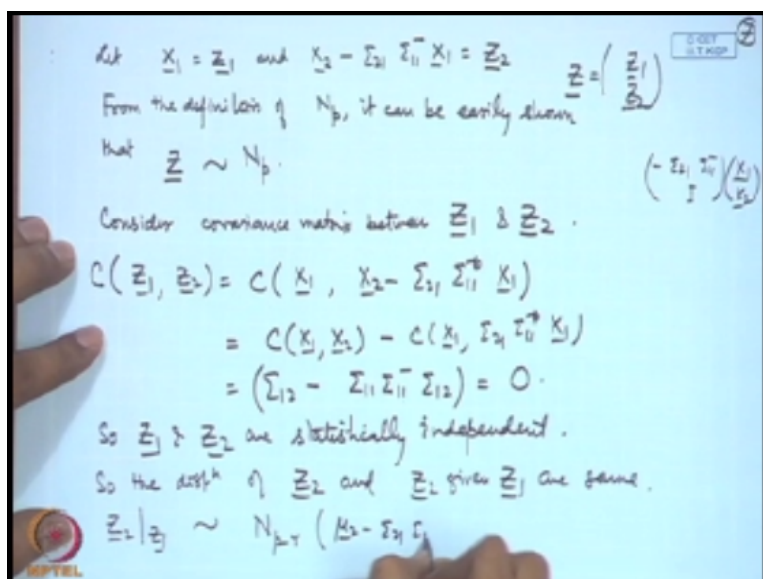 Let X₁ = Z₁ and X₂ - Σ₂₁ Σ₁₁⁻ X₁ = Z₂
Z = (Z₁ Z₂)
From the definition of Nₚ, it can be easily shown
that Z ~ Nₚ.
(- Σ₂₁ Σ₁₁⁻ I)(X₁ X₂)
Consider covariance matrix between Z₁ & Z₂.
C(Z₁, Z₂) = C(X₁, X₂ - Σ₂₁ Σ₁₁⁻ X₁)
= C(X₁, X₂) - C(X₁, Σ₂₁ Σ₁₁⁻ X₁)
= (Σ₁₂ - Σ₁₁ Σ₁₁⁻ Σ₁₂) = 0.
So Z₁ & Z₂ are statistically independent.
So the distⁿ of Z₂ and Z₂ given Z₁ are same.
Z₂|Z₁ ~ Nₚ₋ᵣ (μ₂ - Σ₂₁ Σ₁
NPTEL